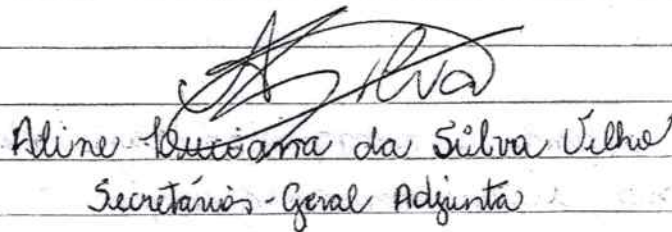 ASilva
Aline Luciana da Silva Velho
Secretários-Geral Adjunta